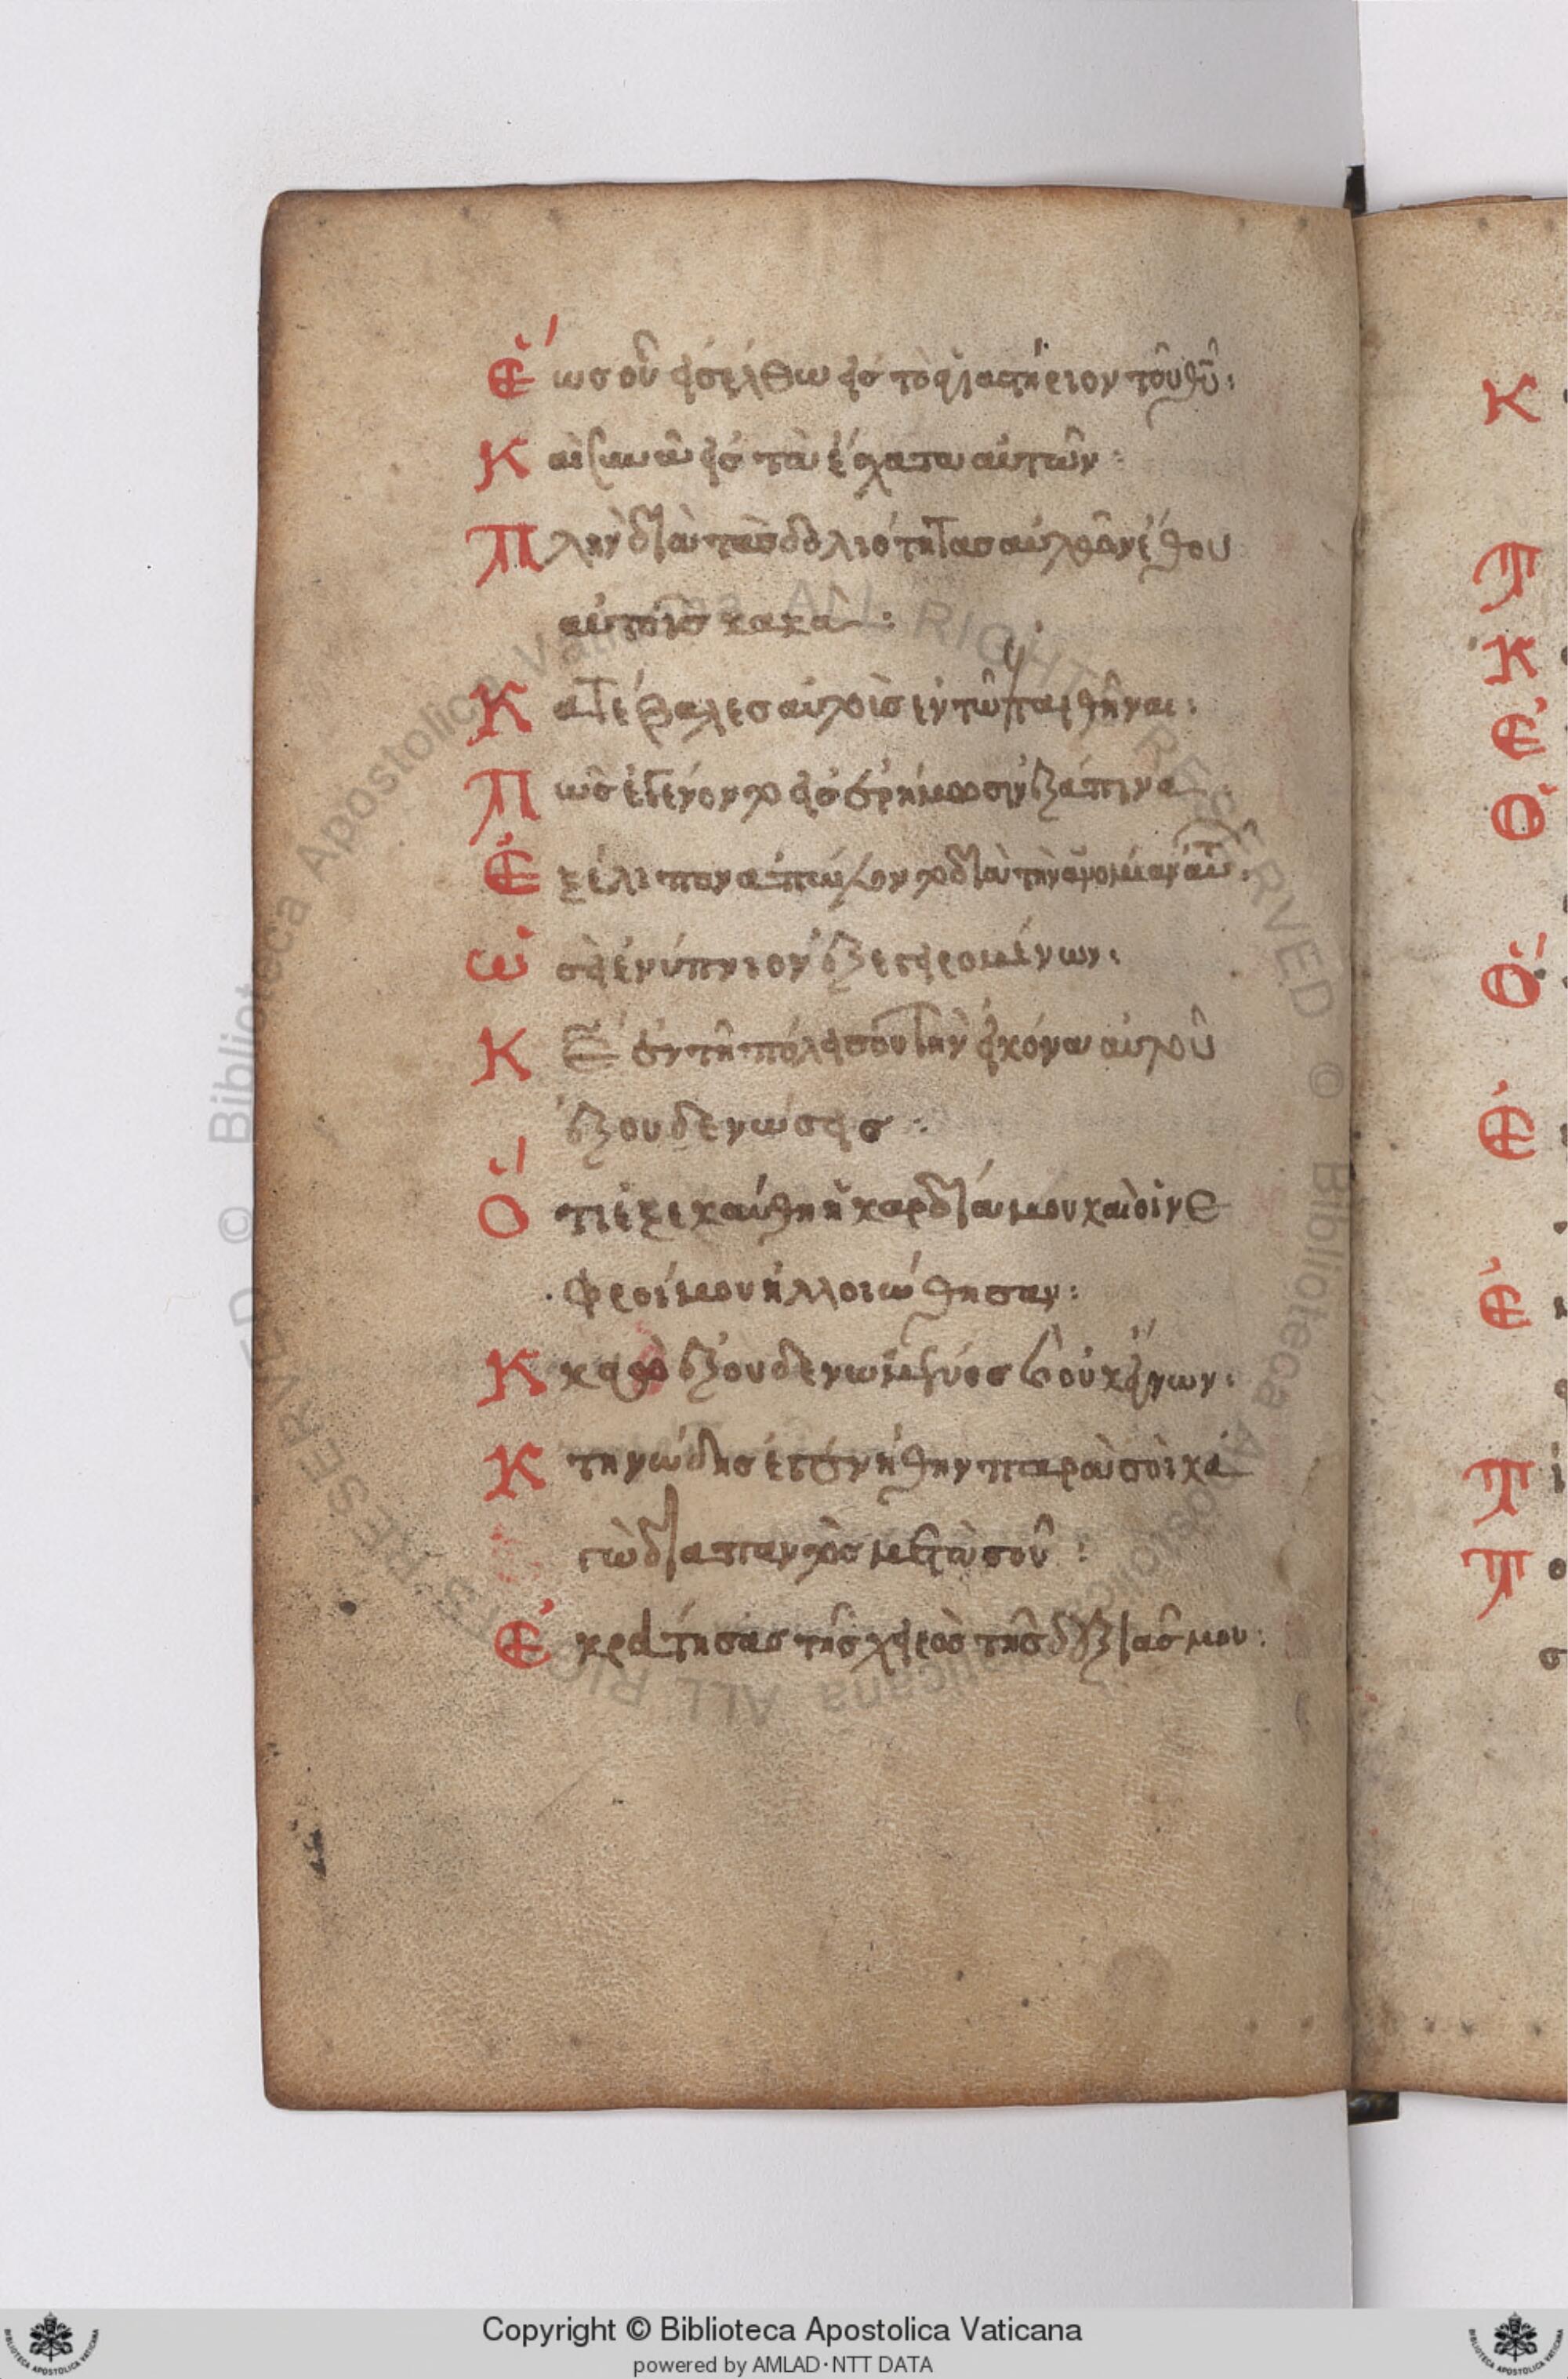 Ἕως οὗ εἰσέλθω εἰς τὸ ἁγιαστήριον τοῦ θυ:
Καὶ συνῶ εἰς τὰ ἔσχατα αὐτῶν:
Πλὴν διὰ τὰς δολιότητας αὐτῶν ἔθου
αὐτοῖς κακά:
Κατέβαλες αὐτοὺς ἐν τῷ ἐπαρθῆναι:
Πῶς ἐγένοντο εἰς ἐρήμωσιν ἐξάπινα:
Ἐξέλιπον ἀπώλοντο διὰ τὴν ἀνομίαν αὐτῶν:
Ὡσεὶ ἐνύπνιον ἐξεγειρομένων:
Κε ἐν τῇ πόλει σου τὴν εἰκόνα αὐτοῦ
ἐξουδενώσεις:
Ὅτι ἐξεκαύθη ἡ καρδία μου καὶ οἱ νε
φροί μου ἠλλοιώθησαν:
Κ κἀγὼ ἐξουδενωμένος καὶ οὐκ ἔγνων:
Κτηνώδης ἐγενήθην παρὰ σοὶ κα
γὼ διαπαντὸς μετὰ σοῦ:
Ἐκράτησας τῆς χειρὸς τῆς δεξιᾶς μου:
Copyright © Biblioteca Apostolica Vaticana
powered by AMLAD·NTT DATA